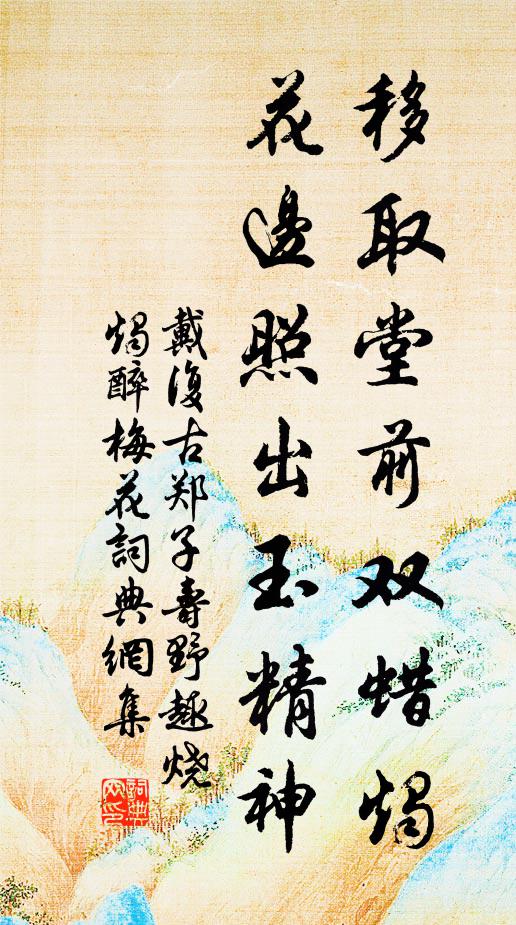 移取堂前双蜡烛
花邊照出玉精神
戴復古郑子壽野趣烧
烛醉梅花詞典網集
詞典网印